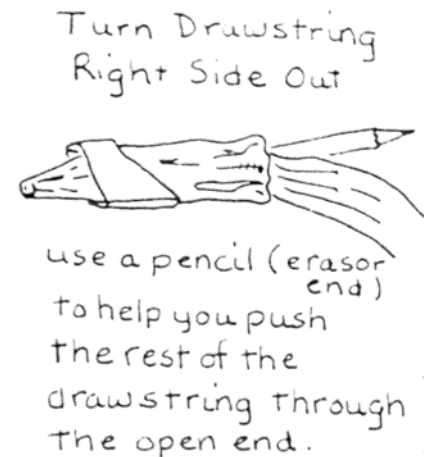 Turn Drawstring
Right Side Out
use a pencil (erasor
end)
to help you push
the rest of the
drawstring through
the open end.